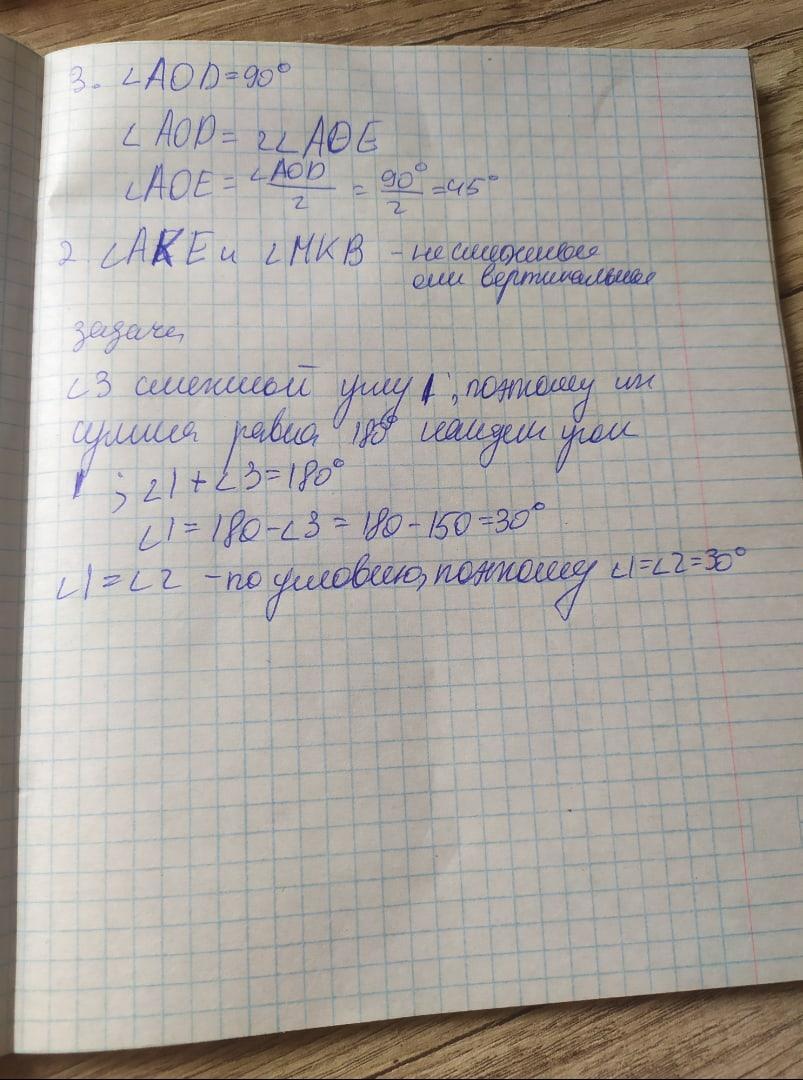 3. ∠AOD = 90°
∠AOD = 2∠AOE
∠AOE = ∠AOD/2 = 90°/2 = 45°
2 ∠AKE и ∠MKB – не смежные
они вертикальные
задача
∠3 смежный углу 1; поэтому их
сумма равна 180° найдем угол
1; ∠1 + ∠3 = 180°
∠1 = 180 - ∠3 = 180 - 150 = 30°
∠1 = ∠2 – по условию, поэтому ∠1=∠2=30°